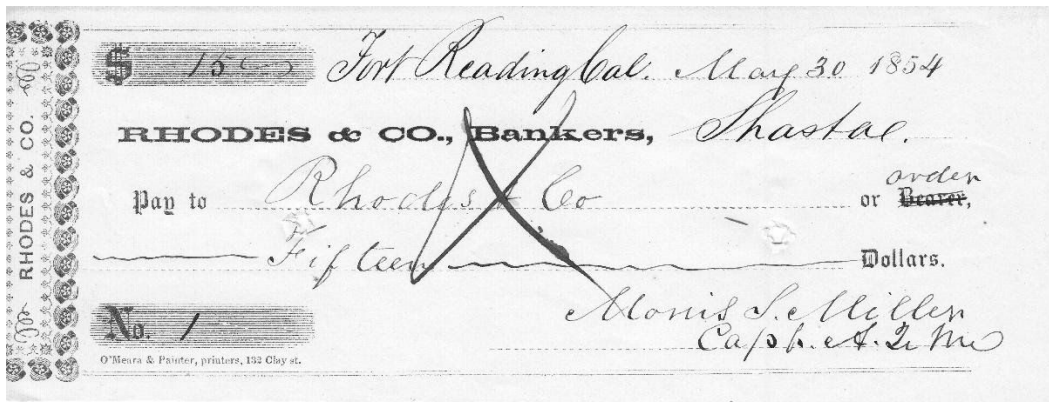 RHODES & CO.
$ 15 00 Fort Reading Cal. May 30 1854
RHODES & CO., Bankers, Shasta.
order
Pay to Rhodes & Co or Bearer,
Fifteen Dollars.
Morris S. Miller
No. 1 Capt. A. Q. M.
O'Meara & Painter, printers, 132 Clay st.